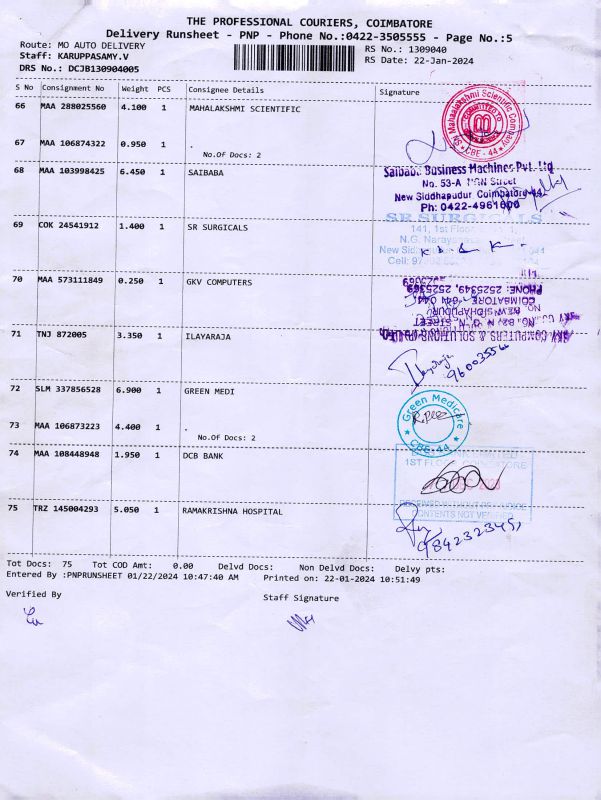 THE PROFESSIONAL COURIERS, COIMBATORE
Delivery Runsheet - PNP - Phone No.:0422-3505555 - Page No.:5
Route: MO AUTO DELIVERY
RS No.: 1309040
Staff: KARUPPASAMY.V
RS Date: 22-Jan-2024
DRS No.: DCJB130904005
S No Consignment No Weight PCS Consignee Details Signature
66 MAA 288025560 4.100 1 MAHALAKSHMI SCIENTIFIC
Mahaalakshmi Scientific Company
CBE - 44
67 MAA 106874322 0.950 1 .
No.Of Docs: 2
68 MAA 103998425 6.450 1 SAIBABA
Saibaba Business Machines Pvt. Ltd
No. 53-A Street
New Siddhapudur Coimbatore-44
Ph: 0422-4961000
69 COK 24541912 1.400 1 SR SURGICALS
SR SURGICALS
141, 1st Floor
70 MAA 573111849 0.250 1 GKV COMPUTERS
PHONE: 2525349, 2525369
COIMBATORE - 641 044.
NEW SIDHAPUDUR
71 TNJ 872005 3.350 1 ILAYARAJA
COMPUTERS & SOLUTIONS
72 SLM 337856528 6.900 1 GREEN MEDI
Green Medicare
CBE-44
73 MAA 106873223 4.400 1 .
No.Of Docs: 2
74 MAA 108448948 1.950 1 DCB BANK
1ST FLOOR
CONTENTS NOT VERIFIED
75 TRZ 145004293 5.050 1 RAMAKRISHNA HOSPITAL
Tot Docs: 75 Tot COD Amt: 0.00 Delvd Docs: Non Delvd Docs: Delvy pts:
Entered By :PNPRUNSHEET 01/22/2024 10:47:40 AM Printed on: 22-01-2024 10:51:49
Verified By
Staff Signature